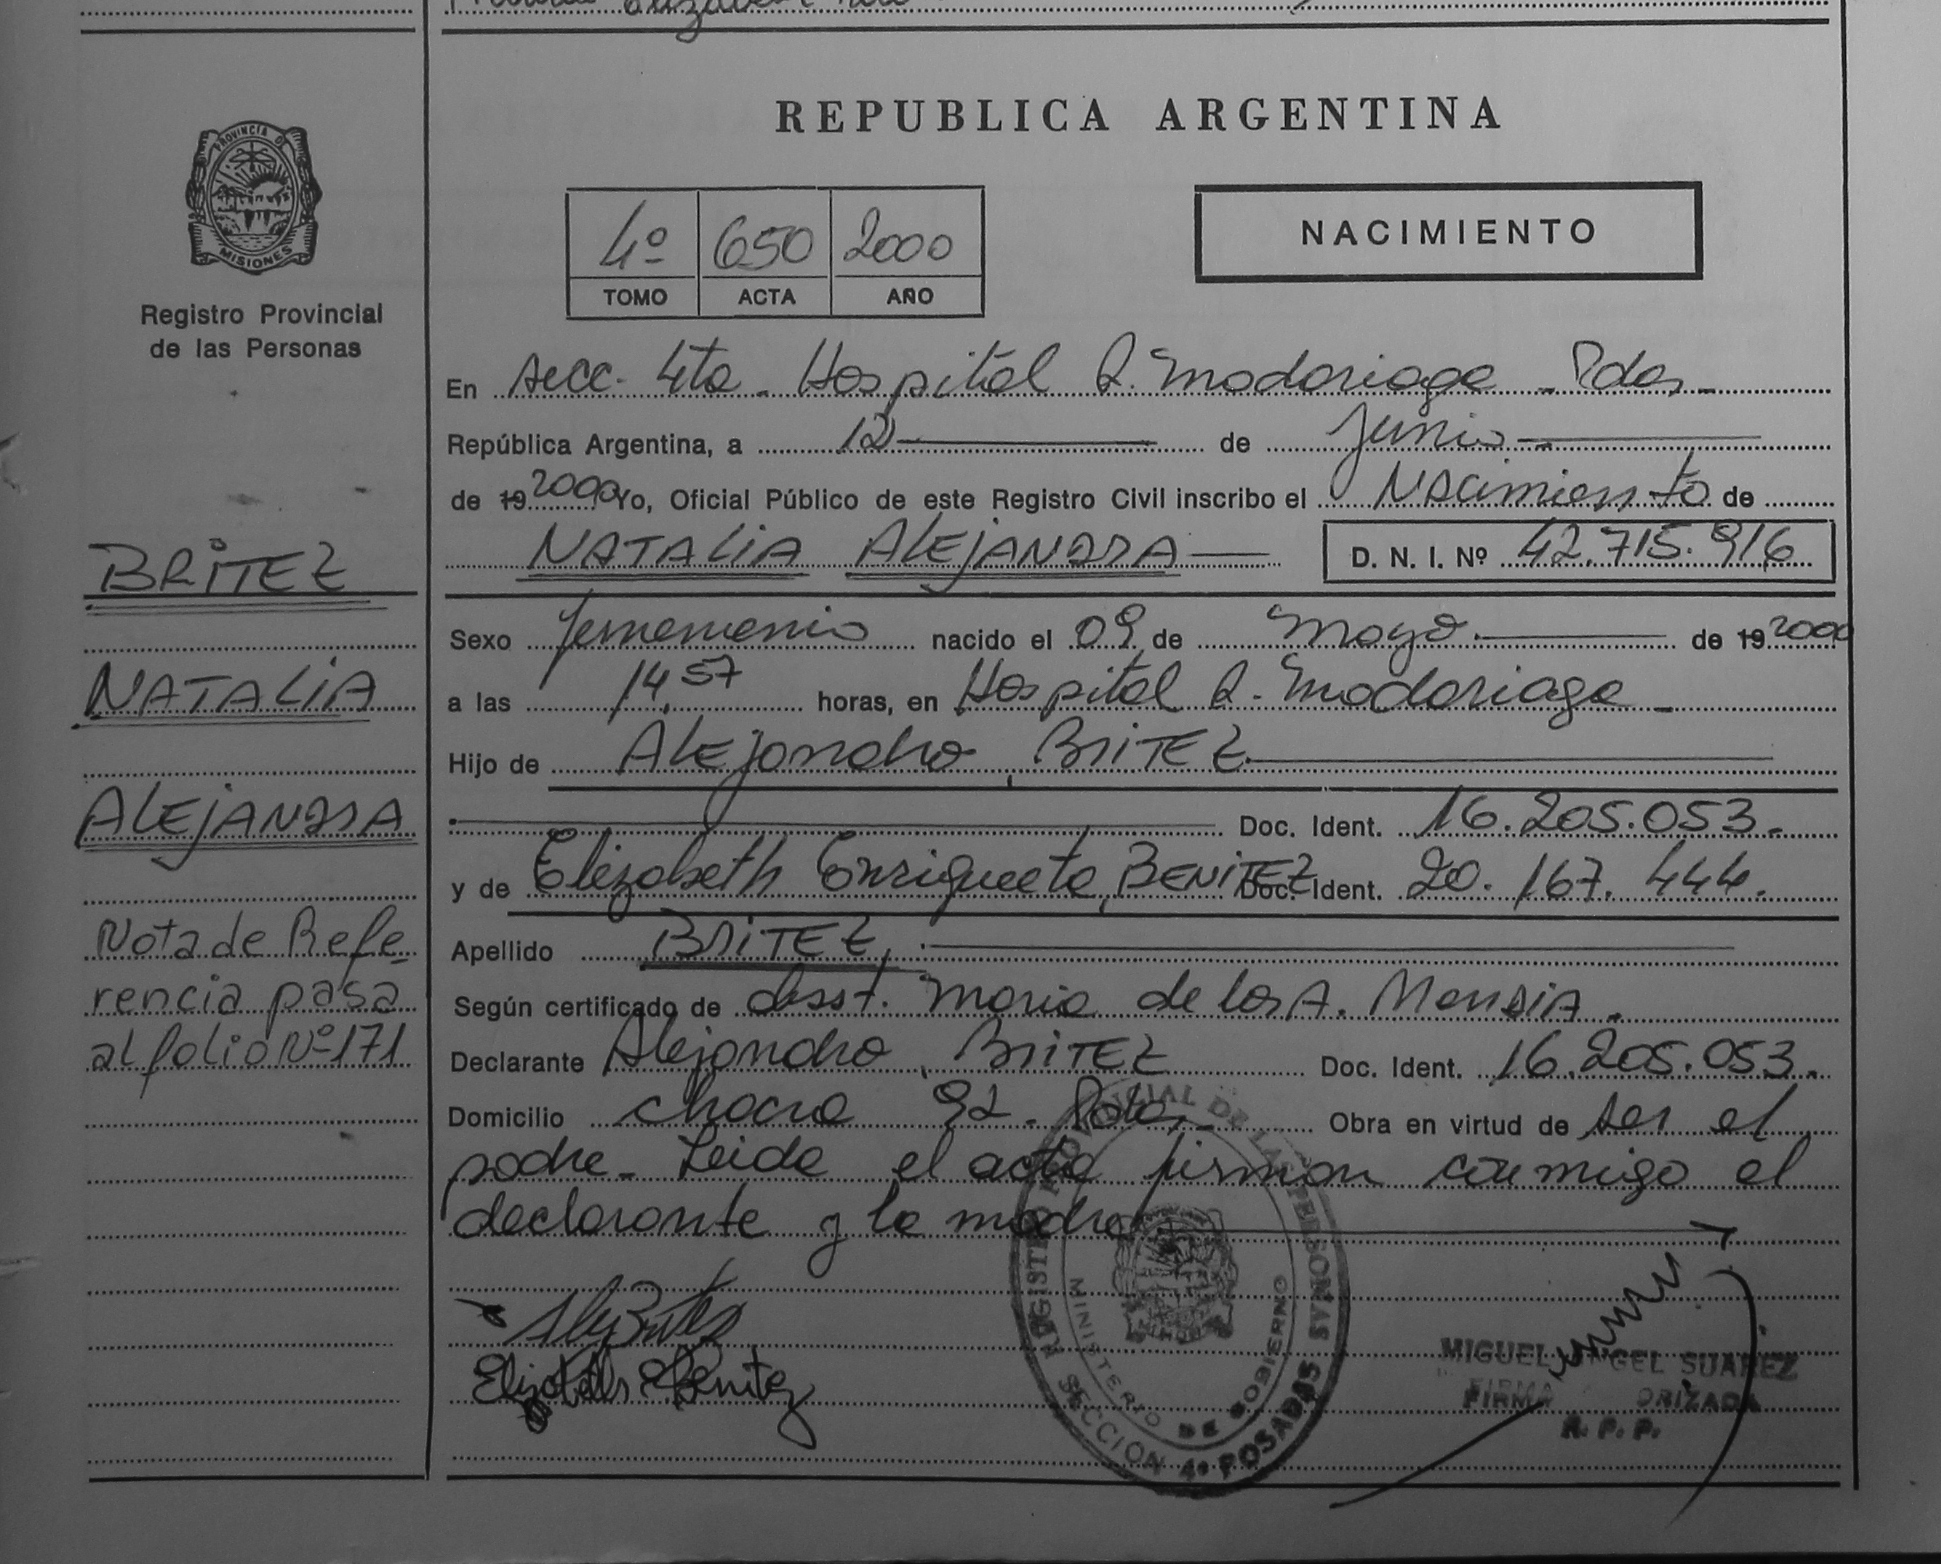 PROVINCIA DE
MISIONES
Registro Provincial
de las Personas
BRITEZ
NATALIA
ALEJANDRA
Nota de Refe-
rencia pasa
al folio Nº 171
REPUBLICA ARGENTINA
4º 650 2000
TOMO ACTA AÑO
NACIMIENTO
En secc. 4ta. Hospital R. Madariaga - Pdas -
República Argentina, a 12 de Junio
de 19 2000 Yo, Oficial Público de este Registro Civil inscribo el Nacimiento de
NATALIA ALEJANDRA D. N. I. Nº 42.715.916
Sexo femenino nacido el 09 de Mayo de 19 2000
a las 14,57 horas, en Hospital R. Madariaga -
Hijo de Alejandro, BRITEZ
Doc. Ident. 16.205.053.
y de Elizabeth Enriqueta, BENITEZ Doc. Ident. 20.167.444.
Apellido BRITEZ.
Según certificado de obsst. Maria de los A. Mendia.
Declarante Alejandro, BRITEZ Doc. Ident. 16.205.053.
Domicilio chacra 92. Pdas. Obra en virtud de ser el
padre. Leida el acta firman conmigo el
declarante y la madre
REGISTRO PROVINCIAL DE LAS PERSONAS
MINISTERIO DE GOBIERNO
SECCION 4º POSADAS
Elizabeth E Benitez
MIGUEL ANGEL SUAREZ
FIRMA AUTORIZADA
R. P. P.